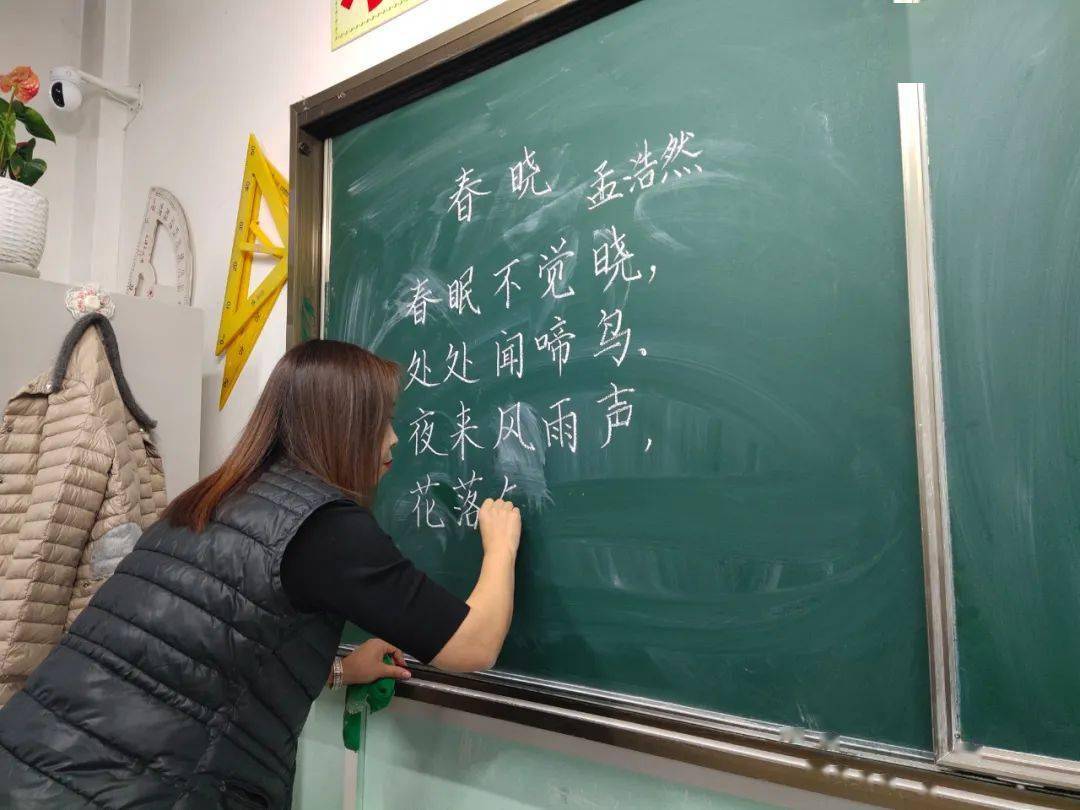 春晓 孟浩然
春眠不觉晓，
处处闻啼鸟、
夜来风雨声，
花落